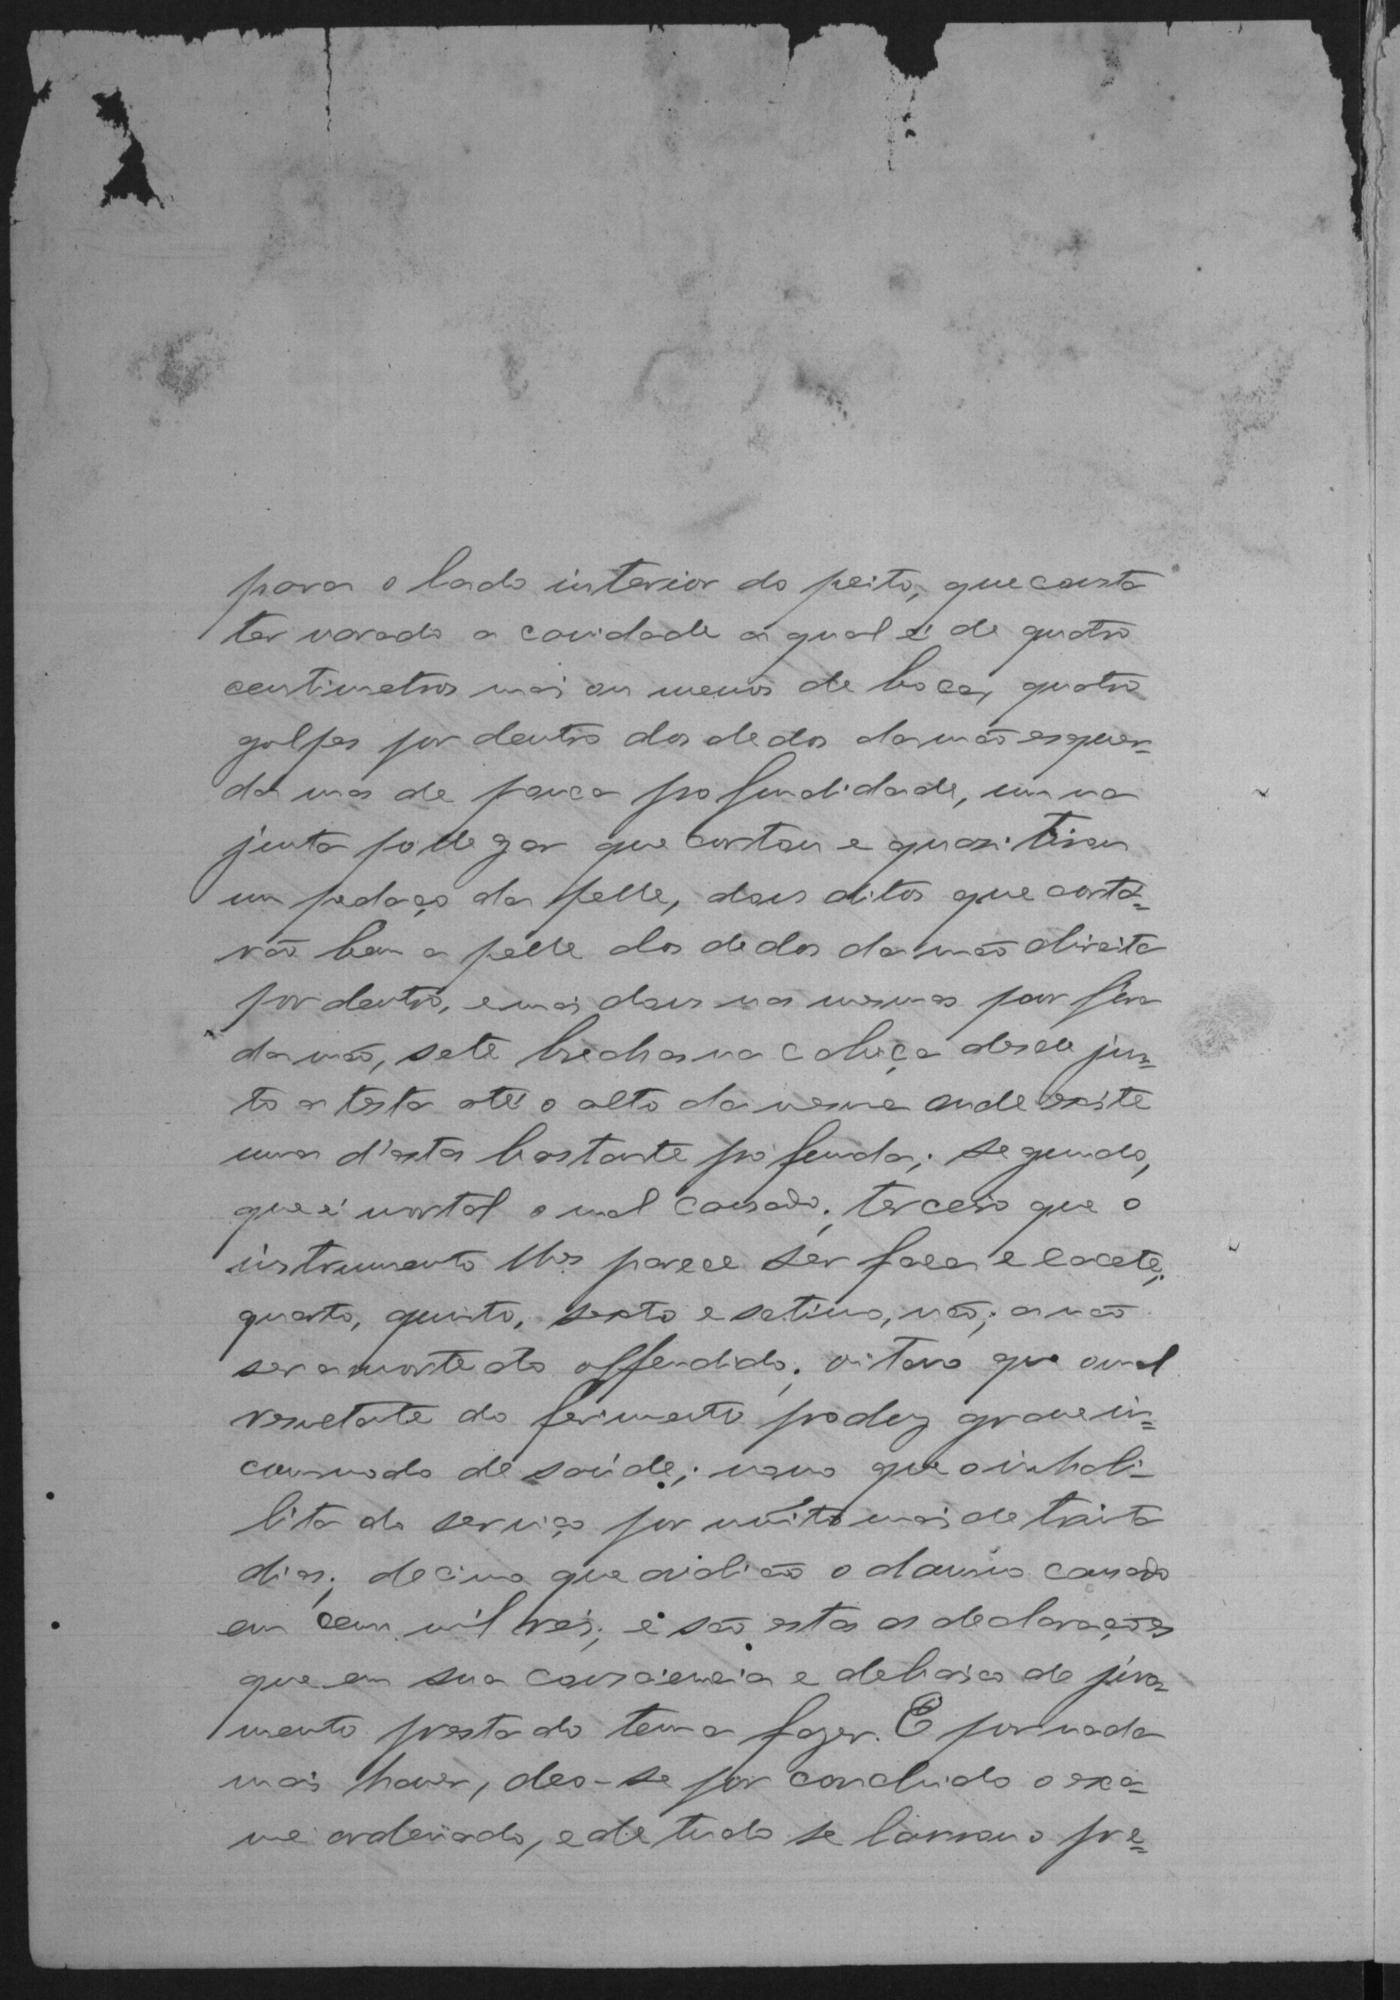 para o lado interior do peito, que consta
ter varado a cavidade a qual é de quatro
centimetros mais ou menos de boca, quatro
golpes por dentro dos dedos da mão esquer=
da mas de pouca profundidade, um na
junta pollegar que cortou e quazi tirou
um pedaço da pelle, dois ditos que corta=
rão bem a pelle dos dedos da mão direita
por dentro, e mais dois nas mesmas por fora
da mão, sete brechas na cabeça desde jun=
to a testa até o alto da mesma onde existe
uma d'estas bastante profunda; segundo,
que é mortal o mal causado; terceiro que o
instrumento lhes parece ser faca e cacete;
quarto, quinto, sexto e setimo, não; a não
ser a morte do offendido; oitavo que o mal
resultante do ferimento produz grave in=
commodo de saúde; nono que o inhabi-
lita do serviço por muito mais de trinta
dias; decimo que avalião o damno causado
em cem mil reis; e são estas as declarações
que em sua consciencia e debaixo de jura=
mento prestado tem a fazer. E por nada
mais haver, deo-se por concluido o exa=
me ordenado, e de tudo se lavrou o pre=